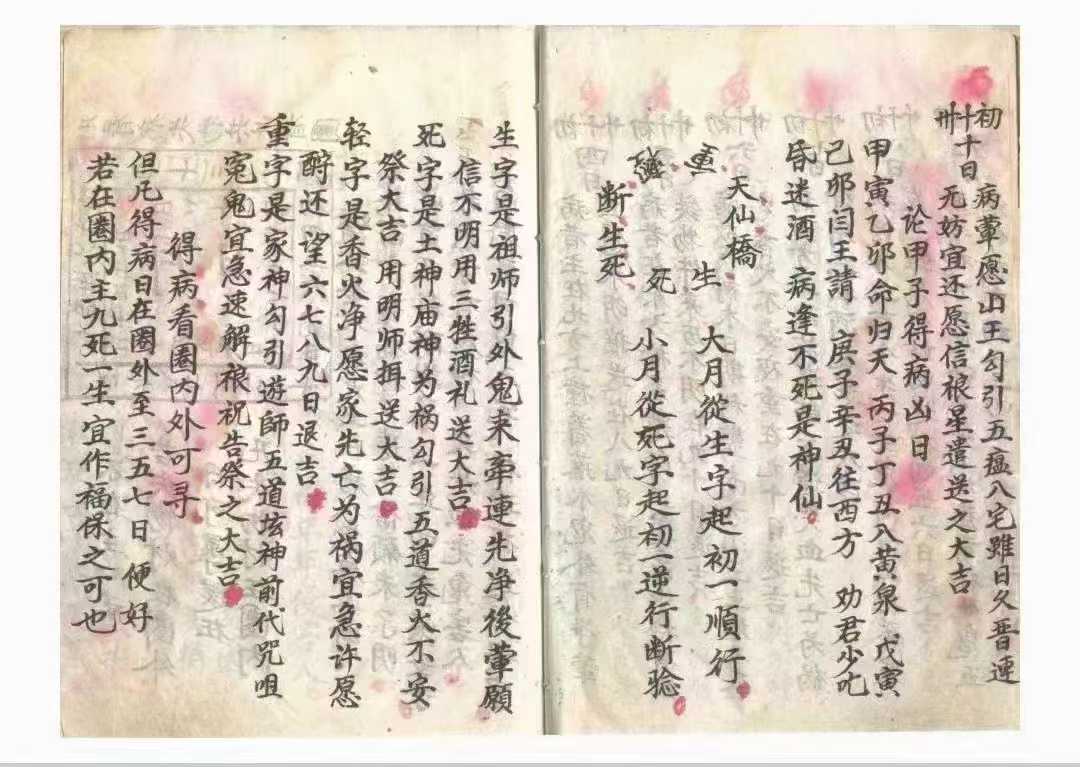 初十日 病葷愿山王勾引五瘟八宅雖日久晋连
卅 无妨宜还愿信根星遣送之大吉
论甲子得病凶日
甲寅乙卯命归天 丙子丁丑入黄泉 戊寅
己卯闫王請 庚子辛丑往西方 劝君少叱
昏迷酒 病逢不死是神仙
天仙橋 生 大月從生字起初一順行
重
死 小月從死字起初一逆行断验
断生死
生字是祖师引外鬼来牵連先净後葷願
信不明用三牲酒礼送大吉
死字是土神庙神为祸勾引五道香火不安
祭大吉 用明师揖送大吉
轻字是香火净愿家先亡为祸宜急许愿
酧还 望六七八九日退吉
重字是家神勾引遊師五道坛神前代咒咀
冤鬼宜急速解禳祝告祭之大吉
得病看圈内外可寻
但凡得病日在圈外至三五七日 便好
若在圈内主九死一生宜作福保之可也